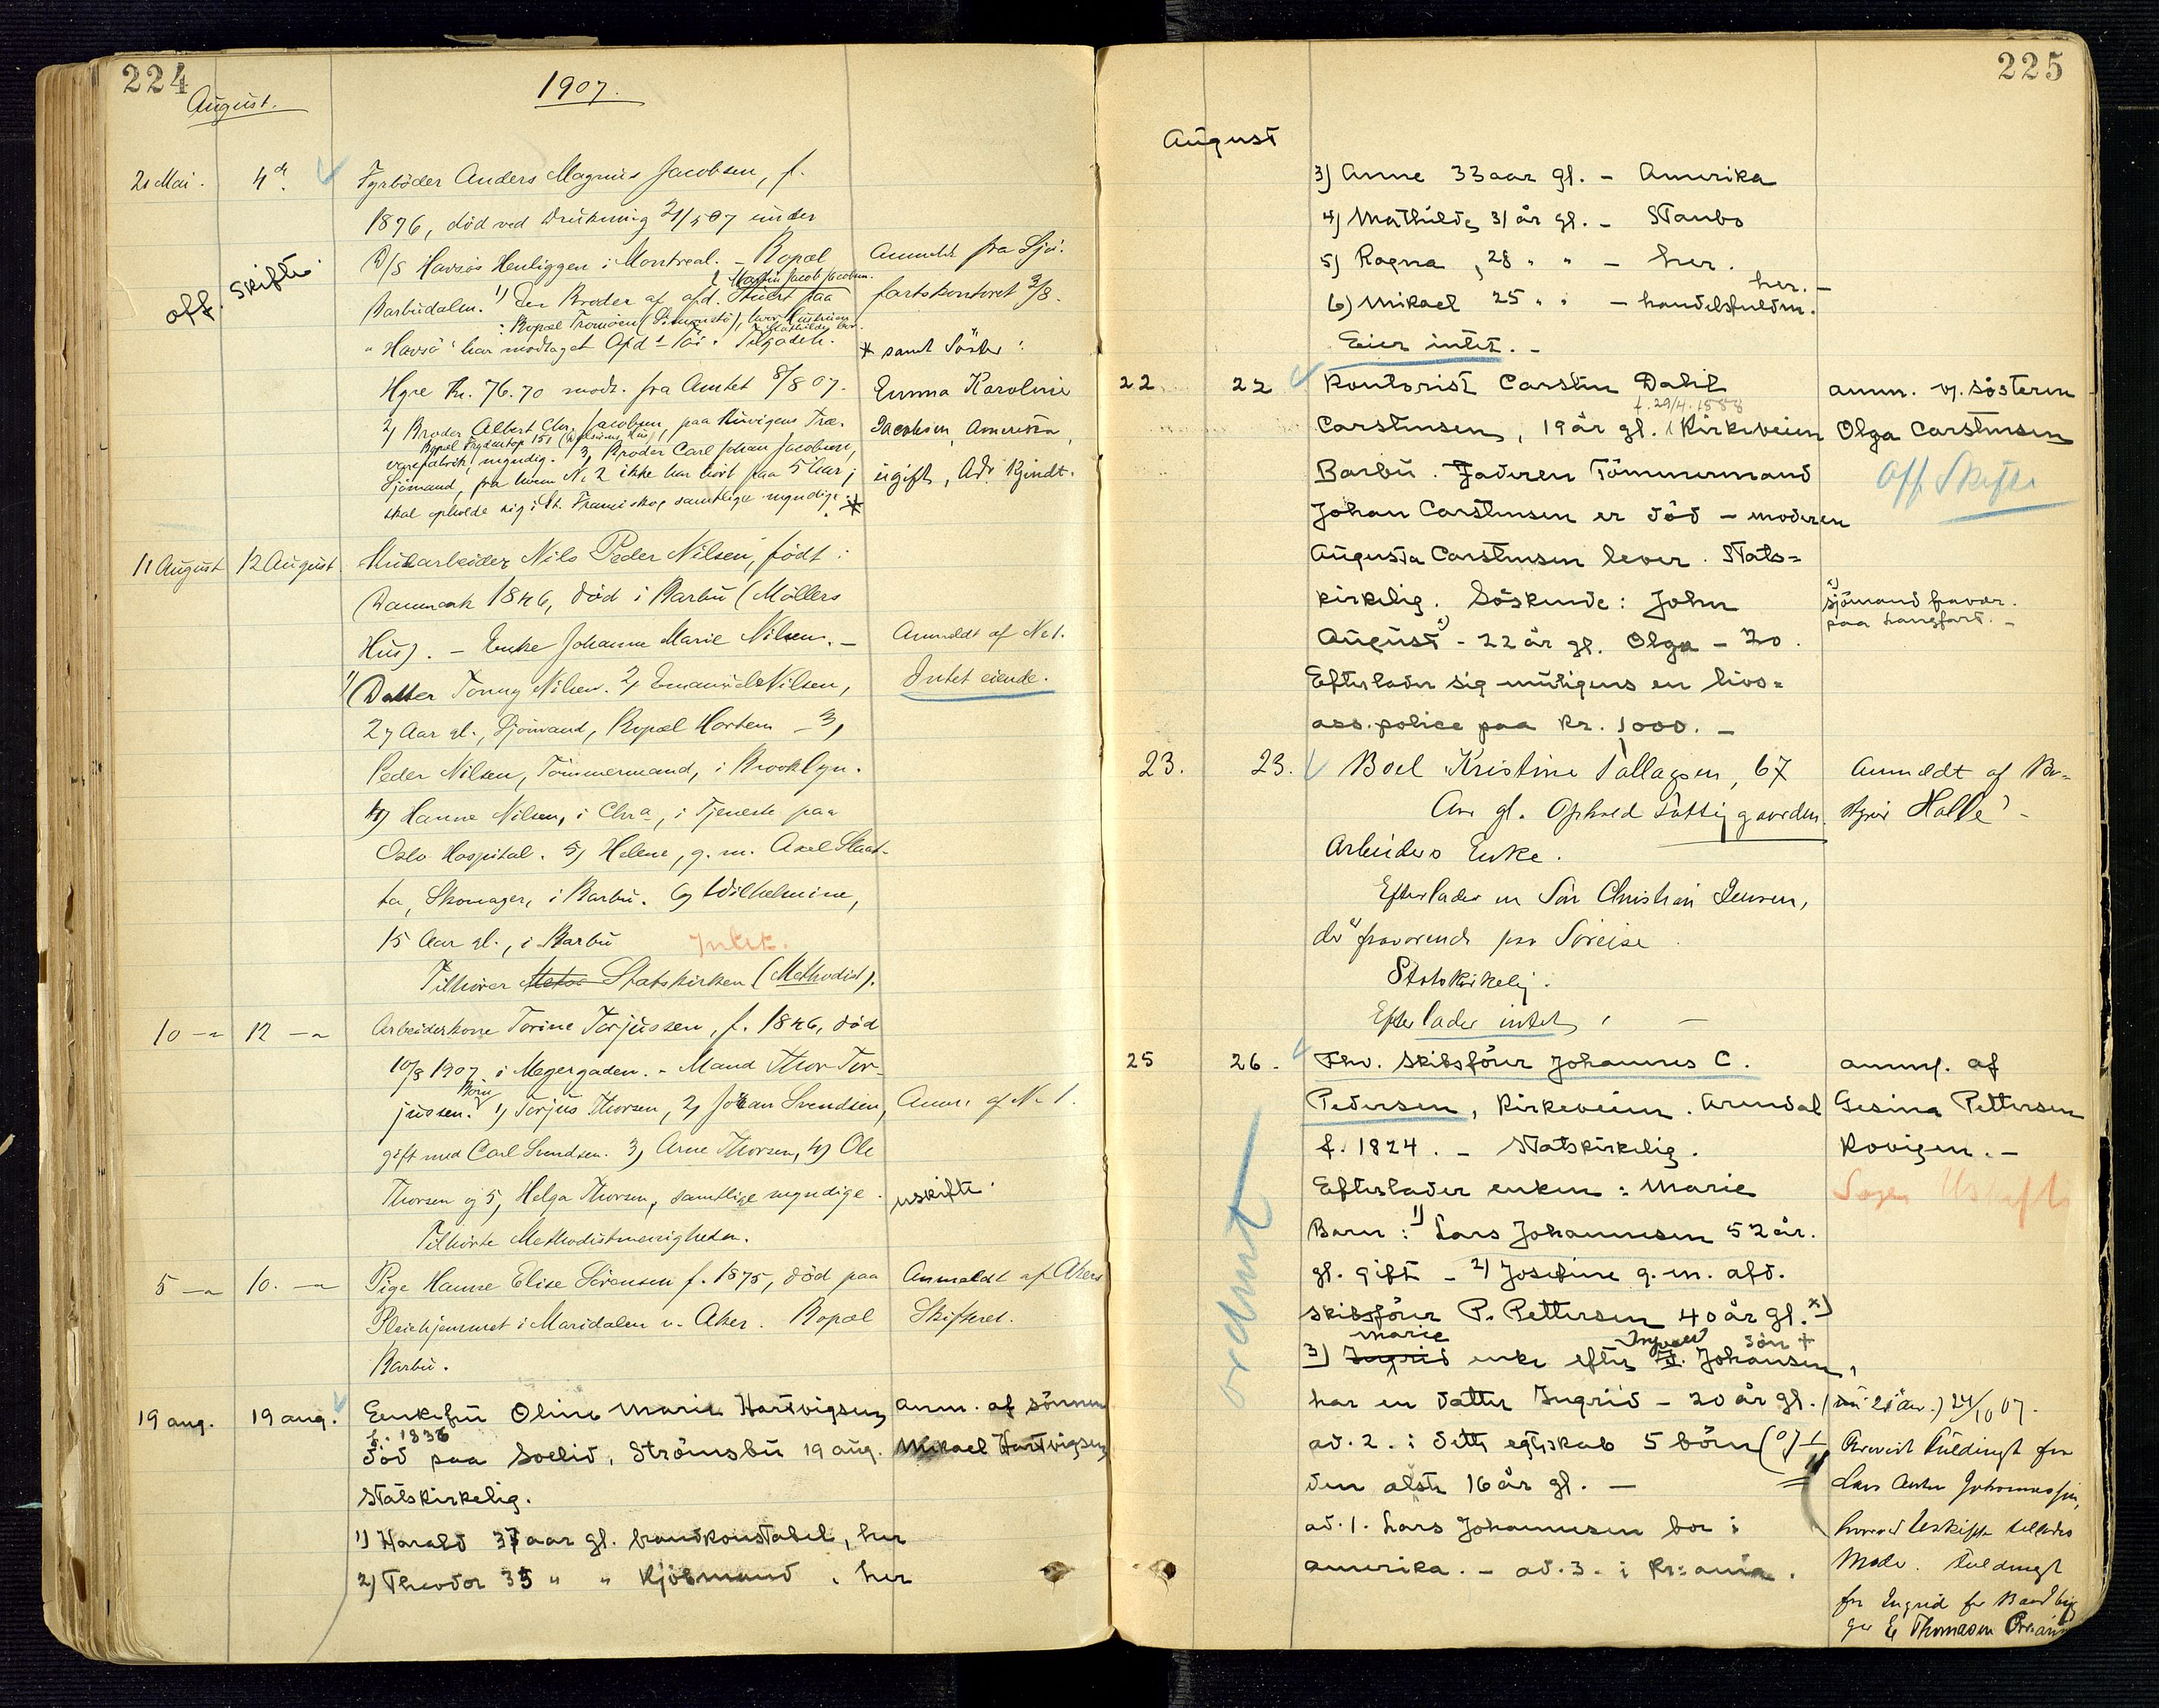 224
August.
1907.
21 Mai. 4de Fyrböder Anders Magnus Jacobsen, f.
1876, död ved Drukning 21/5 07 under
D/S Havsös Henliggen i Montreal. - Bopæl
Anmeldt fra Sjö-
off. skifte
Martin Jacob Jacobsen.
Barbudalen. 1) En Broder af afd. paa
fartskontoret 3/8.
: Bopæl Tromöen
"Havsö" har modtaget Afd's Töi. Tilgodeh.
* samt Söster:
Hyre Kr. 76.70 modt. fra Amtet 8/8 07.
Emma Karoline
2) Broder Albert Chr. Jacobsen, paa Træ-
Jacobsen, Amerika,
myndig. 3) Broder Carl Johan Jacobsen,
Sjömand, fra hvem No 2 ikke har hört paa 5 Aar;
ugift, Ad. Ubjendt.
skal opholde sig i St. Francisko, samtlige myndige. *
11 August 12 August Murarbeider Nils Peder Nilsen, födt i
Danmark 1846, död i Barbu (Möllers
Hus). - Enke Johanne Marie Nilsen. -
Anmeldt af No 1.
1) Datter Tonny Nilsen. 2) Emanuel Nilsen,
Intet eiende.
27 Aar gl., Sjömand, Bopæl Horten - 3)
Peder Nilsen, Tömmermand, i Brooklyn.
4) Hanne Nilsen, i Chra, i Tjeneste paa
Oslo Hospital. 5) Helene, g. m. Axel Slaat-
ta, Skomager, i Barbu. 6) Wilhelmine,
15 Aar gl., i Barbu Intet.
Tilhörer Statskirken (Methodist).
10 -"- 12 -"- Arbeiderkone Torine Torjussen, f. 1846, död
10/8 1907 i Megergaden. - Mand Thor Tor-
Börn
jussen. 1) Torjus Thorsen, 2) Johan Svendsen,
Anm. af No 1.
gift med Carl Svendsen. 3) Arne Thorsen, 4) Ole
Thorsen og 5) Helga Thorsen, samtlige myndige.
uskifte.
Tilhörte Methodistmenigheden.
5 -"- 10. -"- Pige Hanne Elise Sörensen f. 1875, död paa
Anmeldt af Akers
Pleiehjemmet i Maridalen v. Aker. Bopæl
Skifteret.
Barbu.
19 aug. 19 aug. Enkefru Oline Marie Hartvigsen
anm. af sönnen
f. 1836
död paa Sollid, Strömsbu 19 aug.
Mikael Hartvigsen
Statskirkelig.
1) Harald 37 aar gl. brandkonstabel, her
2) Theodor 35 " " Kjöbmand, her
225
August
3) Anne 33 aar gl. - Amerika
4) Mathilde 31 år gl. - Staubo
5) Ragna, 28 " " - her.
her. -
6) Mikael 25 " " - handelsfuldm.
Eier intet. -
22 22 Kontorist Carsten Dahil
anm. v. söstren
f. 29/4. 1888
Carstensen, 19 år gl. Kirkeveien
Olga Carstensen
Barbu. Faderen Tömmermand
Off Skifte
Johan Carstensen er död - moderen
Augusta Carstensen lever. Stats=
kirkelig. Söskende: John
1) sjömand fravær.
paa langfart. -
August 1) - 22 år gl. Olga - 20.
Efterlader sig muligens en livs=
ass. police paa Kr. 1000. -
23. 23. Boel Kristine Tallagsen, 67
Anmeldt af Be-
Aar gl. Ophold Fattiggaarden.
styrer Halle. -
Arbeiders Enke.
Efterlader en Sön Christian Jensen,
der er fraværende paa Söreise.
Statskirkelig.
Efterlader intet. -
25 26. Fhv. skibsförer Johannes C.
anm. af
Pedersen, Kirkeveien. Arendal
Gesina Pettersen
f. 1824. - Statskirkelig.
Kovigen. -
Efterlader enken: Marie
Uskifte
Barn: 1) Lars Johannesen 52 år.
gl. gift - 2) Josefine g. m. afd.
skibsförer P. Pettersen 40 år gl. x)
Marie Ingvald sön +
3) Ingrid enke efter Johansen,
har en datter Ingrid - 20 år gl. (nu 21 Aar.) 24/10 07.
ad. 2. i dette egteskab 5 börn (o)
den ælste 16 år gl. -
ad. 1. Lars Johannesen bor i
amerika. - ad. 3. i Kr:ania.
ordnet
Lars Anton Johannessen,
hvorved Uskifte tillades
Moder. Fuldmagt
for Ingrid
E Thomasen